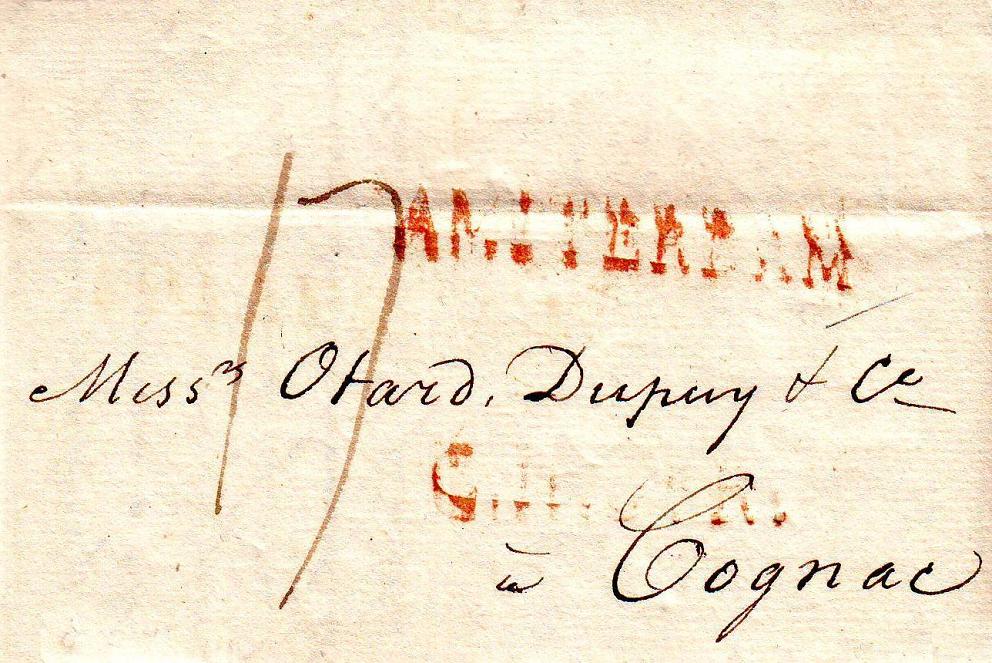 17
AMSTERDAM
Miss^rs Otard, Dupuy & Ce
à Cognac